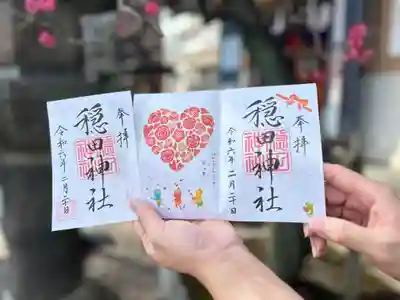 奉拝
穏田神社
令和六年二月二十日
奉拝
穏田神社
令和六年二月二十日